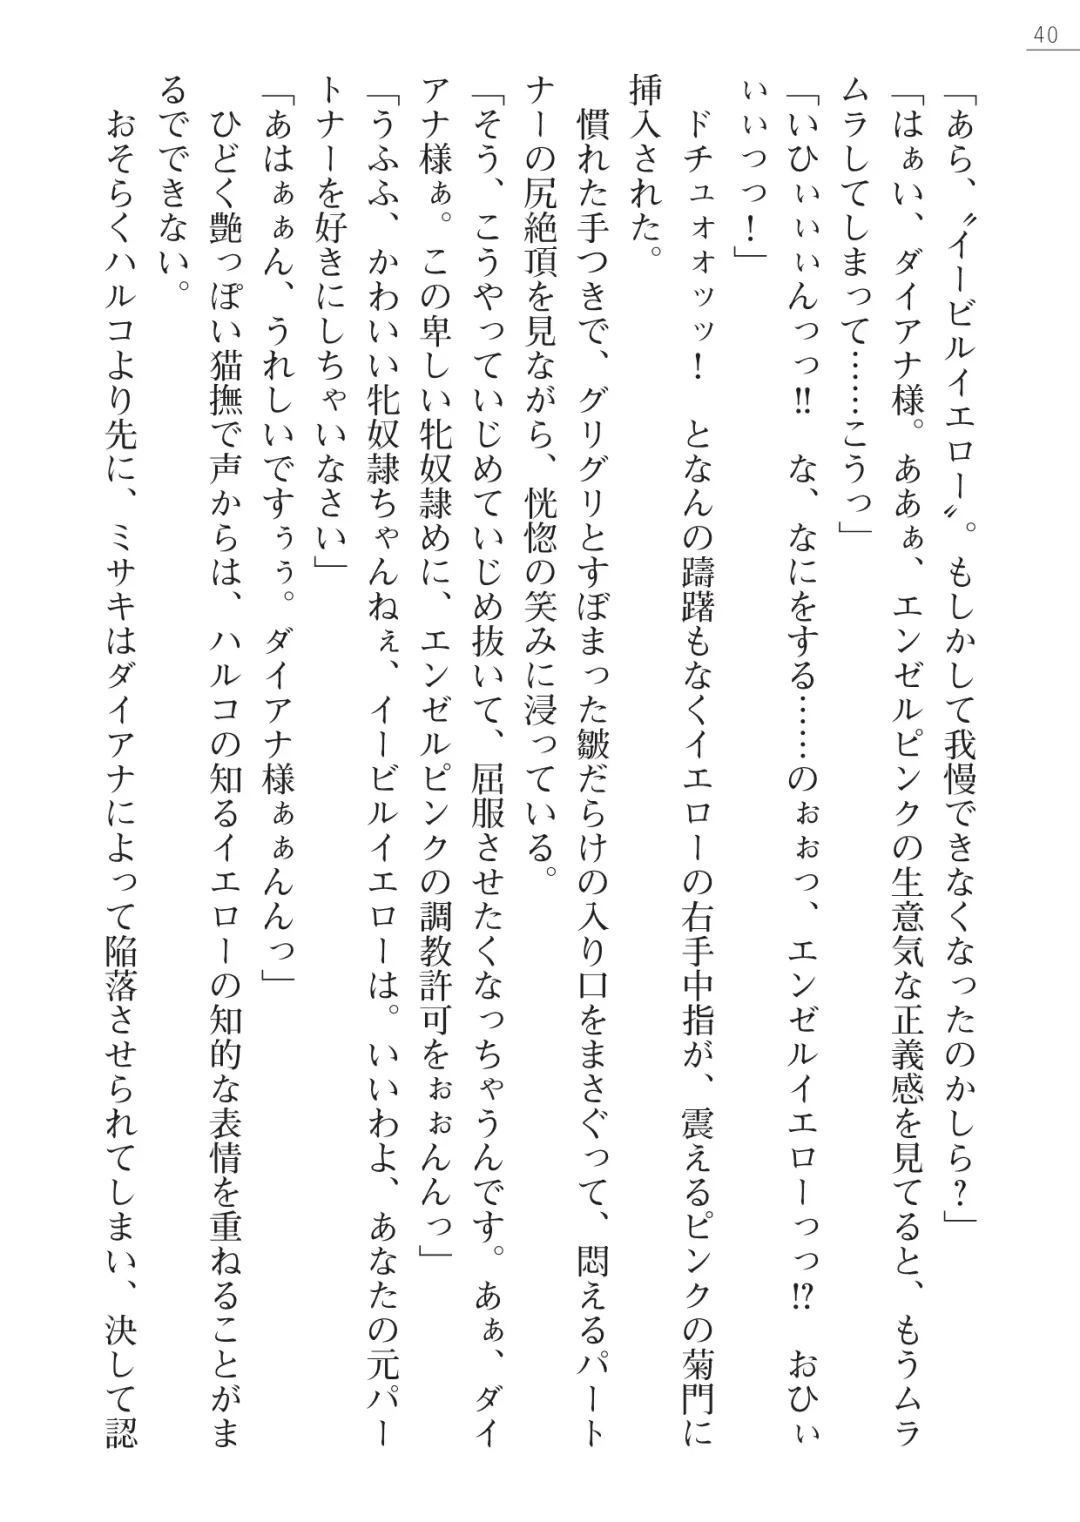 40
「あら、〝イービルイエロー〟。もしかして我慢できなくなったのかしら?」
「はぁい、ダイアナ様。ああぁ、エンゼルピンクの生意気な正義感を見てると、もうムラ
ムラしてしまって……こうっ」
「いひぃぃぃんっっ!! な、なにをする……のぉぉっ、エンゼルイエローっっ!? おひぃ
ぃぃっっ!」
ドチュォォッッ! となんの躊躇もなくイエローの右手中指が、震えるピンクの菊門に
挿入された。
慣れた手つきで、グリグリとすぼまった皺だらけの入り口をまさぐって、悶えるパート
ナーの尻絶頂を見ながら、恍惚の笑みに浸っている。
「そう、こうやっていじめていじめ抜いて、屈服させたくなっちゃうんです。あぁ、ダイ
アナ様ぁ。この卑しい牝奴隷めに、エンゼルピンクの調教許可をぉぉんんっ」
「うふふ、かわいい牝奴隷ちゃんねぇ、イービルイエローは。いいわよ、あなたの元パー
トナーを好きにしちゃいなさい」
「あはぁぁん、うれしいですぅぅ。ダイアナ様ぁぁんんっ」
ひどく艶っぽい猫撫で声からは、ハルコの知るイエローの知的な表情を重ねることがま
るでできない。
おそらくハルコより先に、ミサキはダイアナによって陥落させられてしまい、決して認